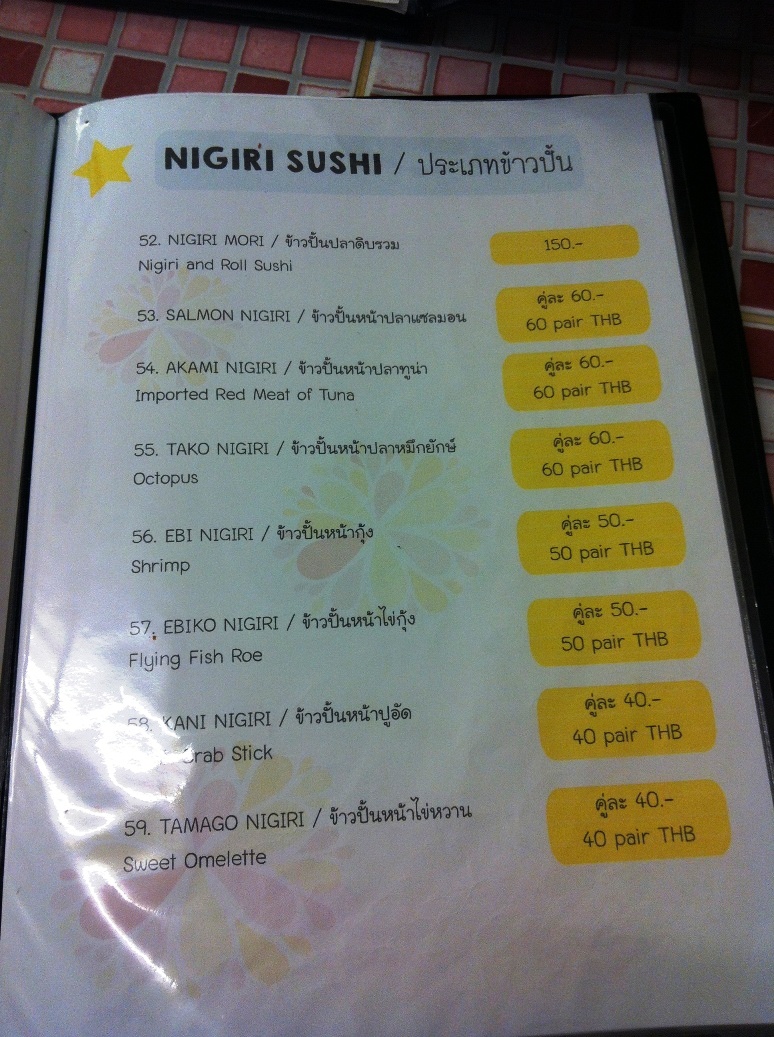 NIGIRI SUSHI / ประเภทข้าวปั้น
52. NIGIRI MORI / ข้าวปั้นปลาดิบรวม
150.-
Nigiri and Roll Sushi
53. SALMON NIGIRI / ข้าวปั้นหน้าปลาแซลมอน
คู่ละ 60.-
60 pair THB
54. AKAMI NIGIRI / ข้าวปั้นหน้าปลาทูน่า
Imported Red Meat of Tuna
คู่ละ 60.-
60 pair THB
55. TAKO NIGIRI / ข้าวปั้นหน้าปลาหมึกยักษ์
Octopus
คู่ละ 60.-
60 pair THB
56. EBI NIGIRI / ข้าวปั้นหน้ากุ้ง
Shrimp
คู่ละ 50.-
50 pair THB
57. EBIKO NIGIRI / ข้าวปั้นหน้าไข่กุ้ง
Flying Fish Roe
คู่ละ 50.-
50 pair THB
58. KANI NIGIRI / ข้าวปั้นหน้าปูอัด
Crab Stick
คู่ละ 40.-
40 pair THB
59. TAMAGO NIGIRI / ข้าวปั้นหน้าไข่หวาน
Sweet Omelette
คู่ละ 40.-
40 pair THB